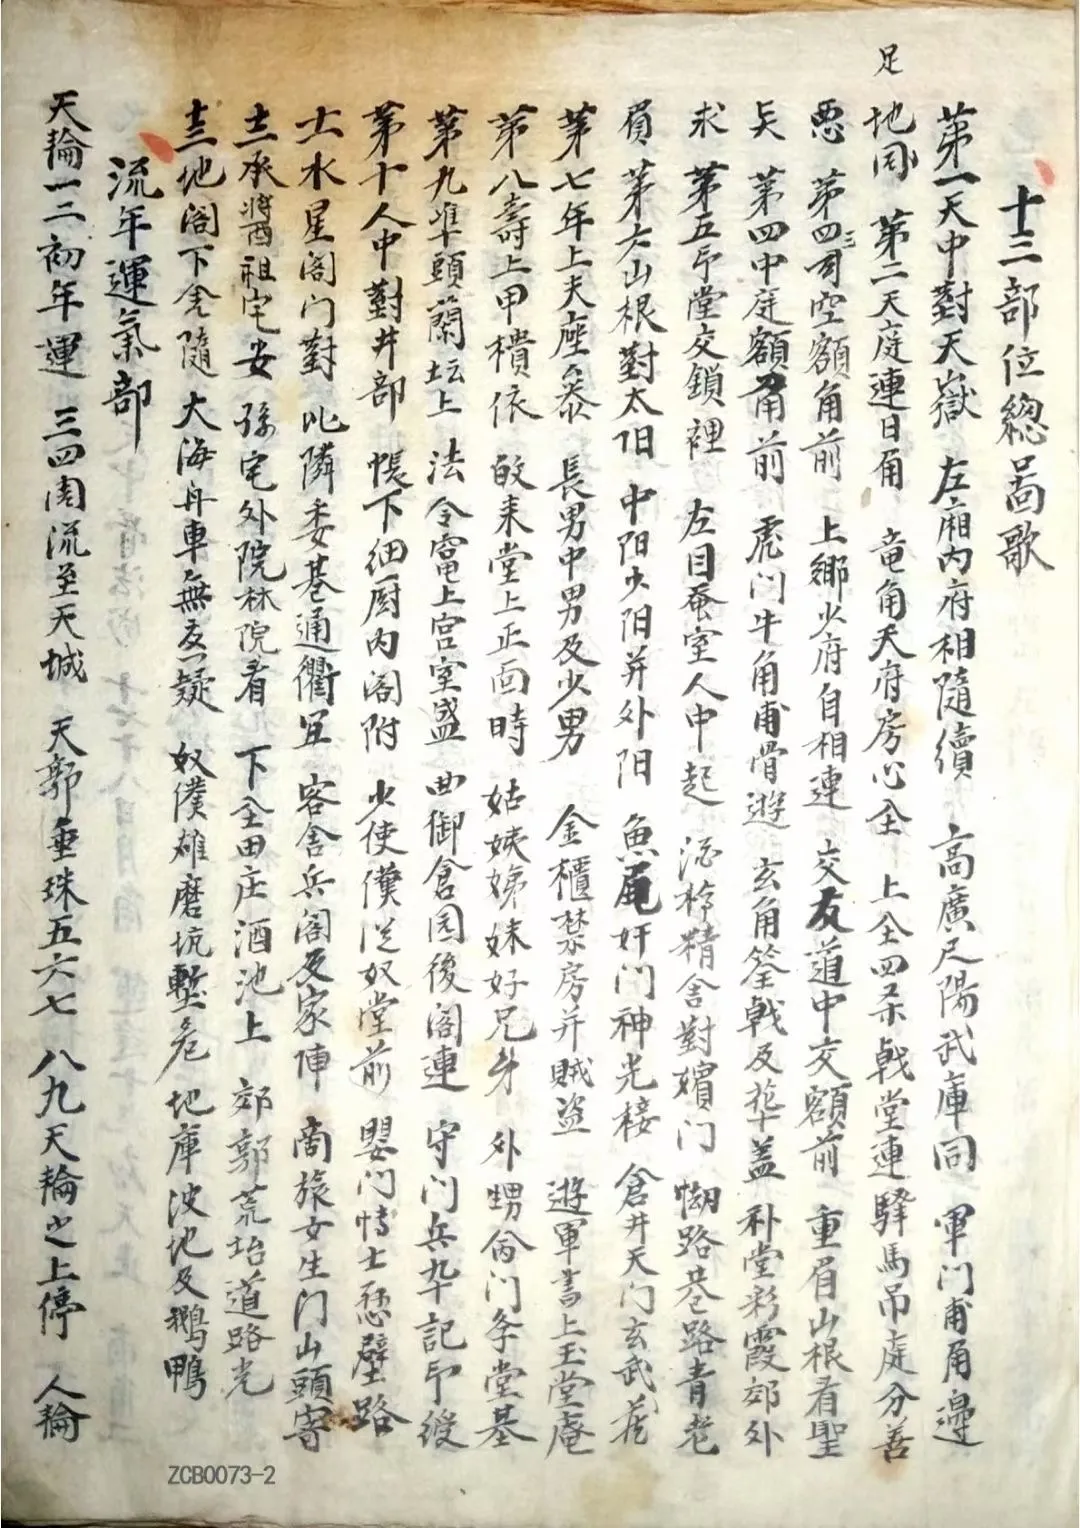 足
十三部位總啚歌
第一天中對天嶽 左廂内府相隨續 高廣尺陽武庫同 軍门甫角邉
地同 第二天庭連日角 竜角天府房心全 上全四杀戟堂連 驛馬吊庭分善
悪 第四三司空額角前 上鄉少府自相連 交友道中交額前 重眉山根看聖
吳 第四中庭額角前 虎门牛角甫骨遊 玄角斧戟及華盖 补堂彩霞郊外
求 第五印堂交鎖裡 左目蚕室人中起 酒樽精舍對嬪门 㥓路巷路青老
負 第六山根對太阳 中阳少阳并外阳 魚尾奸门神光接 倉井天门玄武
第七年上夫座泰 長男中男及少男 金櫃禁房并賊盗 遊軍書上玉堂庵
第八壽上甲櫃依 皈来堂上正面時 姑姨姊妹好兄弟 外甥命门学堂基
第九準頭蘭坛上 法令竈上宫室盛 典御倉园後阁連 守门兵卒記印綬
第十人中對井部 帳下细厨内阁附 少使僕从奴堂前 嬰门博士懸壁路
十一水星阁门對 比隣委巷通衢宜 客舍兵阁及家陣 商旅女生门山頭寄
十二承醬祖宅安 孫宅外院林院看 下全田庄酒池上 郊郭荒坮道路光
十三地阁下舍隨 大海舟車無反疑 奴僕碓磨坑塹危 地庫波池及鵝鴨
流年運氣部
天輪一二初年運 三四周流至天城 天郭垂珠五六七 八九天輪之上停 人輪
ZCB0073-2